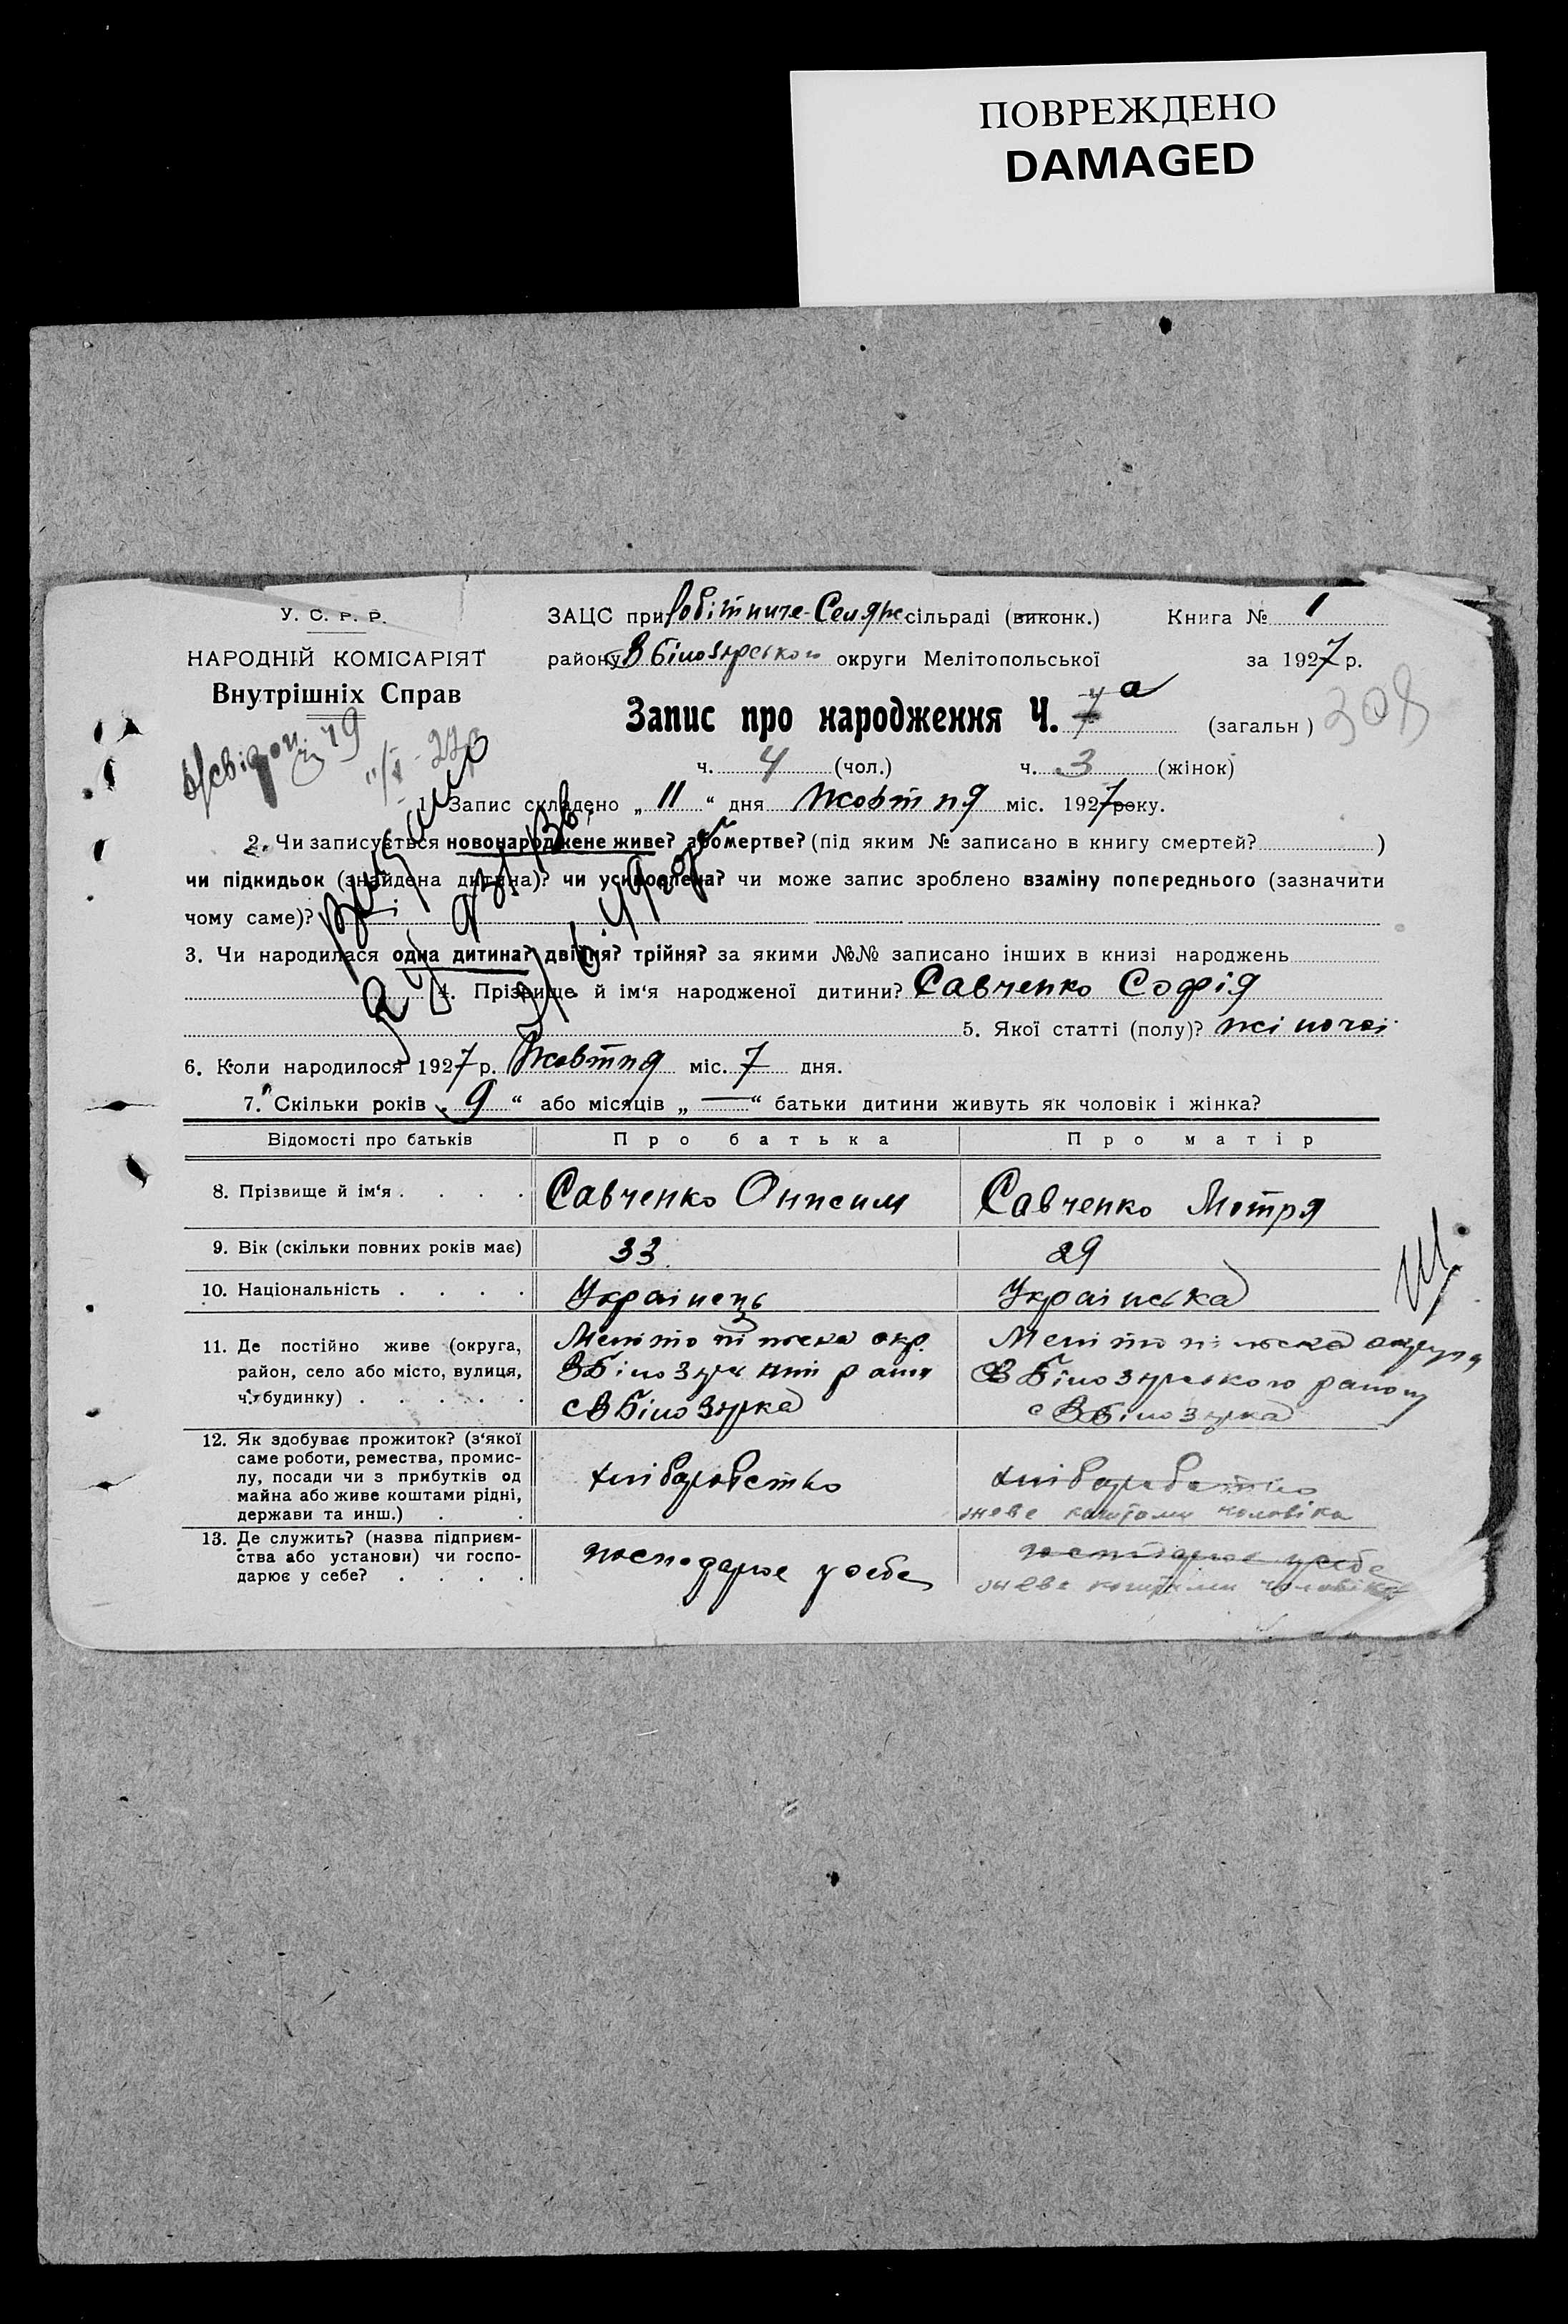 ПОВРЕЖДЕНО
DAMAGED
У. С. Р. Р.
НАРОДНІЙ КОМІСАРІЯТ
Внутрішніх Справ
ЗАЦС при Робітниче-Селянс сільраді (виконк.) Книга № 1
району В Білозурського округи Мелітопольської за 1927 р.
Запис про народження Ч. 7а (загальн) 308
ч. 4 (чол.) ч. 3 (жінок)
1. Запис складено „11“ дня Жовтня міс. 1927 року.
2. Чи записується новонароджене живе? або мертве? (під яким № записано в книгу смертей? )
чи підкидьок (знайдена дитина)? чи усиновлена? чи може запис зроблено взаміну попереднього (зазначити
чому саме)?
3. Чи народилася одна дитина? двійня? трійня? за якими №№ записано інших в книзі народжень
4. Прізвище й ім‘я народженої дитини? Савченко Софія
5. Якої статті (полу)? жіночої
6. Коли народилося 1927 р. Жовтня міс. 7 дня.
7. Скільки років „9“ або місяців „—“ батьки дитини живуть як чоловік і жінка?
Відомості про батьків Про батька Про матір
8. Прізвище й ім‘я . . . . Савченко Онисим Савченко Мотря
9. Вік (скільки повних років має) 33 29
10. Національність . . . . Українець Українська
11. Де постійно живе (округа, Мелітопільска окр. Мелітопільска округа
район, село або місто, вулиця, В Білозурський район В Білозурського району
ч. будинку) . . . . . с В Білозурка с В Білозурка
12. Як здобуває прожиток? (з‘якої
саме роботи, ремества, промис-
лу, посади чи з прибутків од хліборобство хліборобство
майна або живе коштами рідні,
держави та инш.) . . живе коштами чоловіка
13. Де служить? (назва підприєм-
ства або установи) чи госпо- господарює у себе господарює у себе
дарює у себе? . . . . живе коштами чоловіка